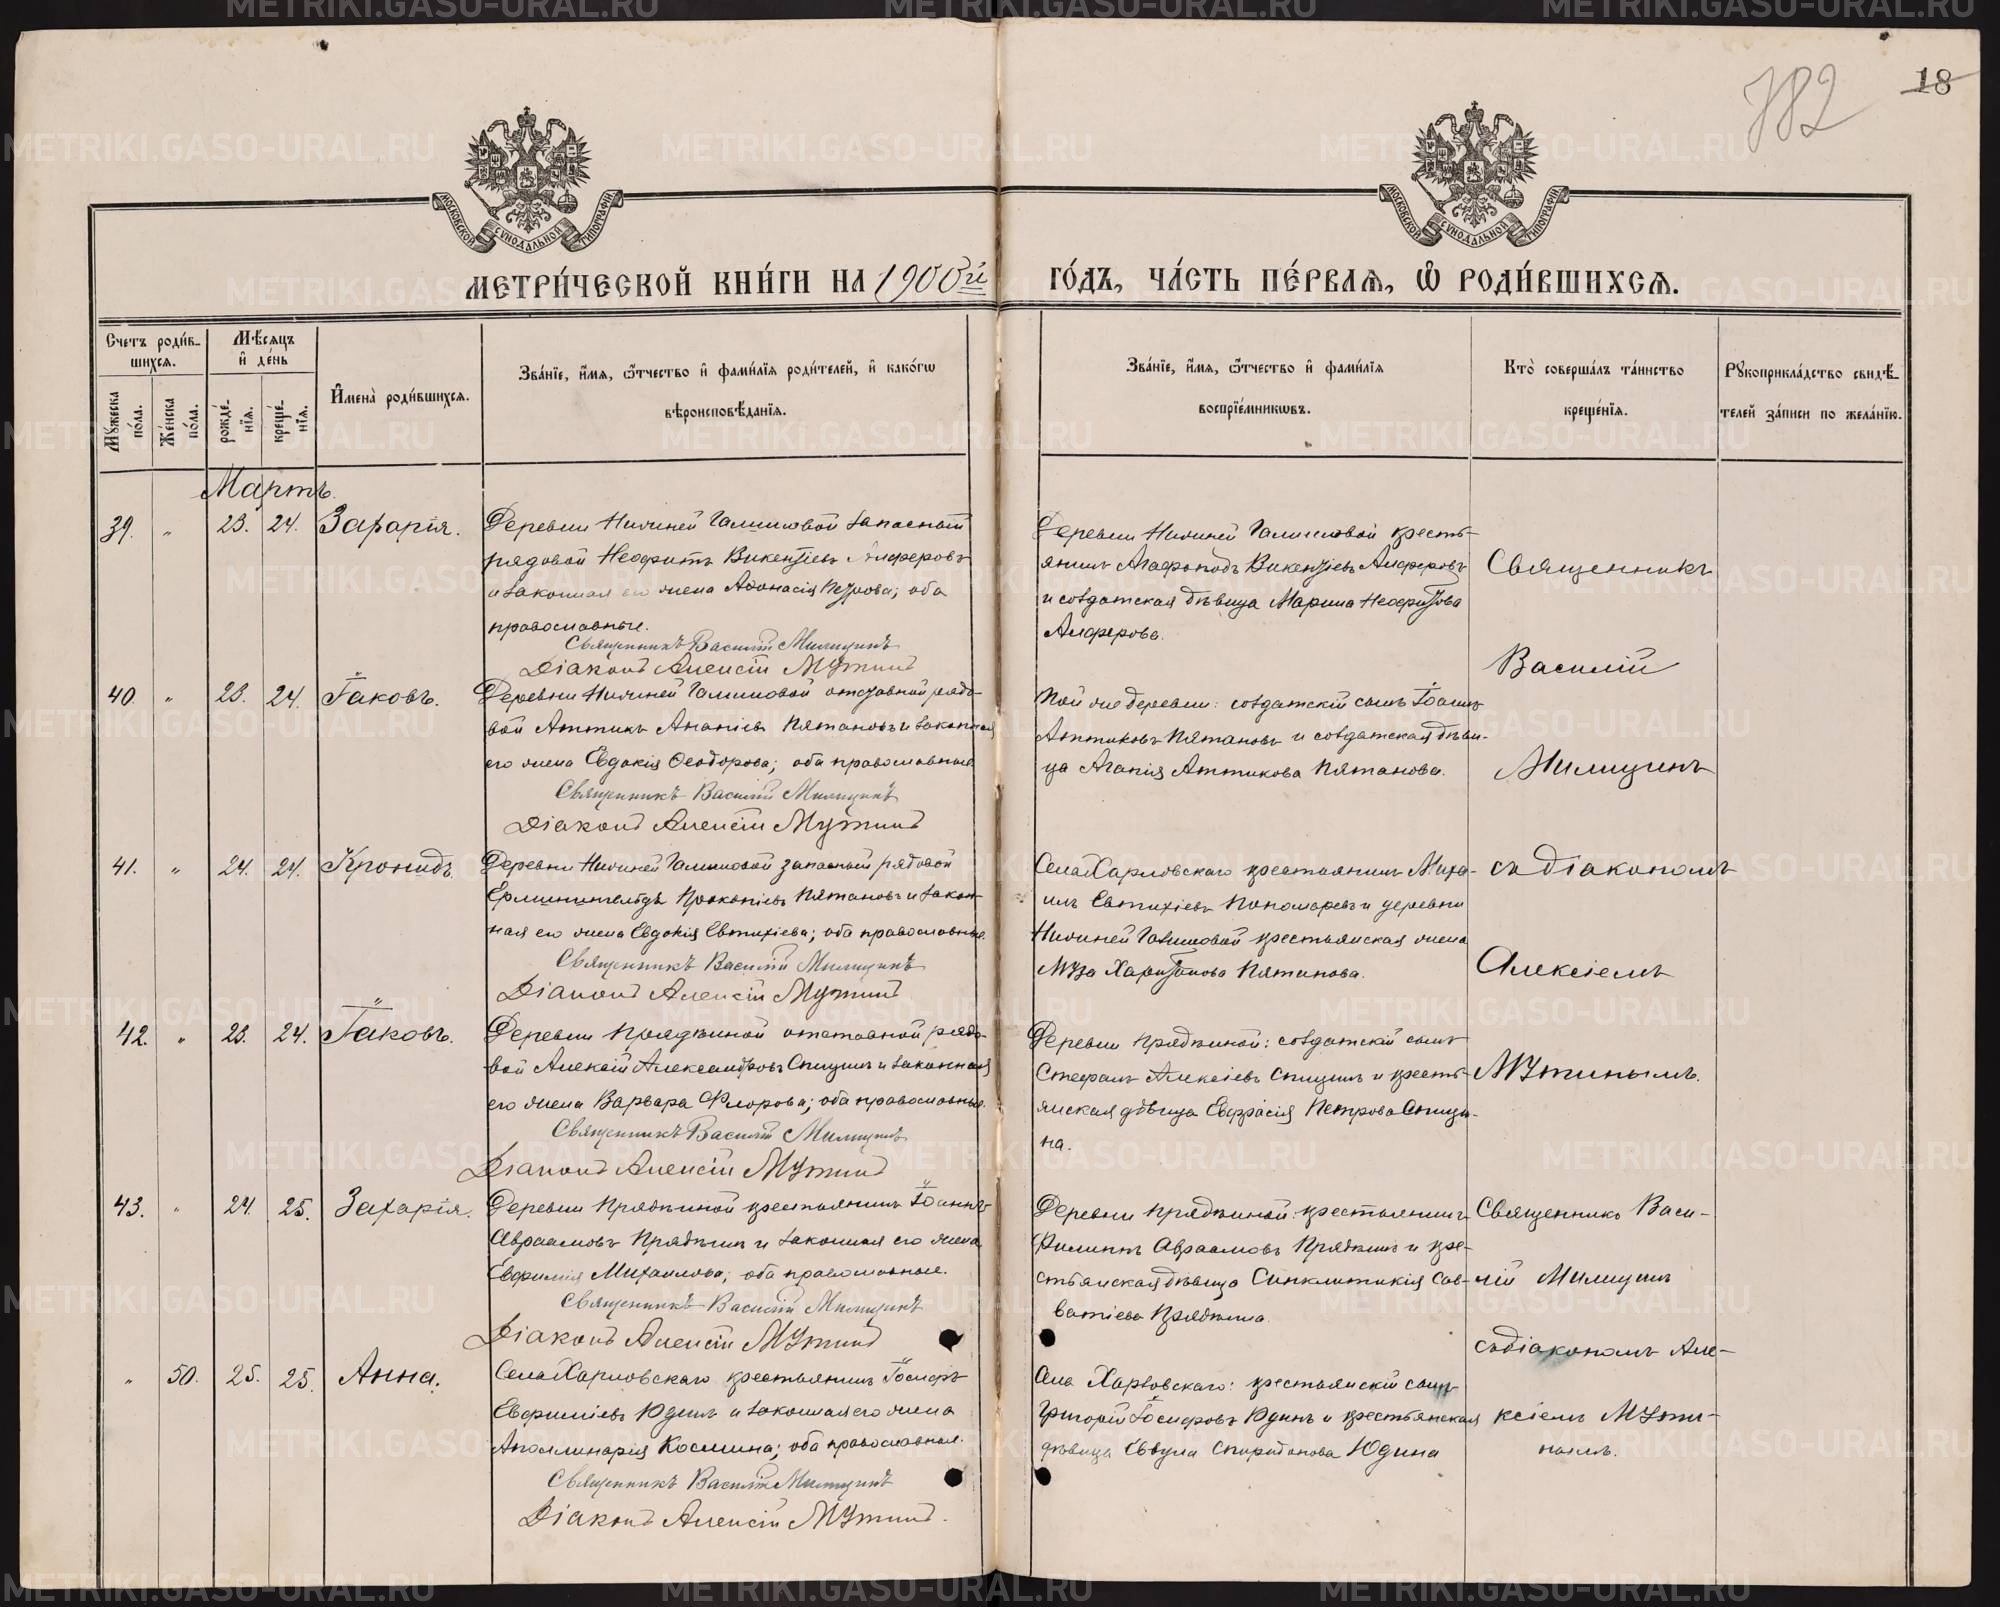 782
18
МОСКОВСКОЙ СУНОДАЛЬНОЙ ТИПОГРАФІИ
МОСКОВСКОЙ СУНОДАЛЬНОЙ ТИПОГРАФІИ
МЕТРИ́ЧЕСКОЙ КНИ́ГИ НА 1900й ГО́ДЪ, ЧА́СТЬ ПЕ́РВАѦ, Ѡ РОДИ́ВШИХСѦ.
Счетъ роди́в-
шихсѧ.
Мꙋжеска по́ла.
Же́нска по́ла.
Мѣ́сѧцъ
и҆ де́нь
рожде́-
нїѧ.
креще́-
нїѧ.
И҆мена̀ роди́вшихсѧ.
Зва́нїе, и҆́мѧ, ѻ҆́тчество и҆ фами́лїѧ роди́телей, и҆ како́гѡ
вѣроисповѣ́данїѧ.
Зва́нїе, и҆́мѧ, ѻ҆́тчество и҆ фами́лїѧ
воспрїе́мникѡвъ.
Кто̀ соверша́лъ та́инство
креще́нїѧ.
Рꙋкоприкла́дство свидѣ́-
телей за́писи по жела́нїю.
Мартъ.
39. " 23. 24. Захарія.
Деревни Нижней Галишовой запасный
рядовой Неофитъ Викентіевъ Алферовъ
и законная его жена Аѳанасія Петрова; оба
православные.
Священникъ Василій Милицинъ
Діаконъ Алексій Мутинъ
Деревни Нижней Галишовой кресть-
янинъ Агафоподъ Викентіевъ Алферовъ
и солдатская дѣвица Марина Неофитова
Алферова.
40. " 23. 24. Іаковъ.
Деревни Нижней Галишовой отставной рядо-
вой Аттикъ Ананіевъ Пятановъ и законная
его жена Евдокія Ѳеодорова; оба православные
Священникъ Василій Милицинъ
Діаконъ Алексій Мутинъ
Той же деревни: солдатскій сынъ Іоаннъ
Аттиковъ Пятановъ и солдатская дѣви-
ца Агапія Аттикова Пятанова.
41. " 24. 24. Кронидъ.
Деревни Нижней Галишовой запасный рядовой
Ерминингельдъ Прокопіевъ Пятановъ и закон-
ная его жена Евдокія Евтихіева; оба православные.
Священникъ Василій Милицинъ
Діаконъ Алексій Мутинъ
Села Харловскаго крестьянинъ Миха-
илъ Евтихіевъ Пономаревъ и деревни
Нижней Галишовой крестьянская жена
Муза Харитонова Пятанова.
42. " 23. 24. Іаковъ.
Деревни Прядкиной отставной рядо-
вой Алексій Александровъ Спицинъ и законная
его жена Варвара Флорова; оба православные.
Священникъ Василій Милицинъ
Діаконъ Алексій Мутинъ
Деревни Прядкиной: солдатскій сынъ
Стефанъ Алексіевъ Спицинъ и кресть-
янская дѣвица Евфрасія Петрова Спици-
на.
Священникъ
Василій
Милицинъ
съ діакономъ
Алексіемъ
Мутинымъ.
43. " 24. 25. Захарія.
Деревни Прядкиной крестьянинъ Іоаннъ
Авраамовъ Прядкинъ и законная его жена
Евфимія Михаилова; оба православные.
Священникъ Василій Милицинъ
Діаконъ Алексій Мутинъ
Деревни Прядкиной: крестьянинъ
Филиппъ Авраамовъ Прядкинъ и кре-
стьянская дѣвица Синклитикія Сав-
ватіева Прядкина.
" 50. 25. 25. Анна.
Села Харловскаго крестьянинъ Іосифъ
Евфиміевъ Юдинъ и законная его жена
Аполлинарія Космина; оба православные.
Священникъ Василій Милицинъ
Діаконъ Алексій Мутинъ.
Села Харловскаго: крестьянскій сынъ
Григорій Іосифовъ Юдинъ и крестьянская
дѣвица Еввула Спиридонова Юдина
Священникъ Васи-
лій Милицинъ
съ діакономъ Але-
ксіемъ Мути-
нымъ.
METRIKI.GASO-URAL.RU